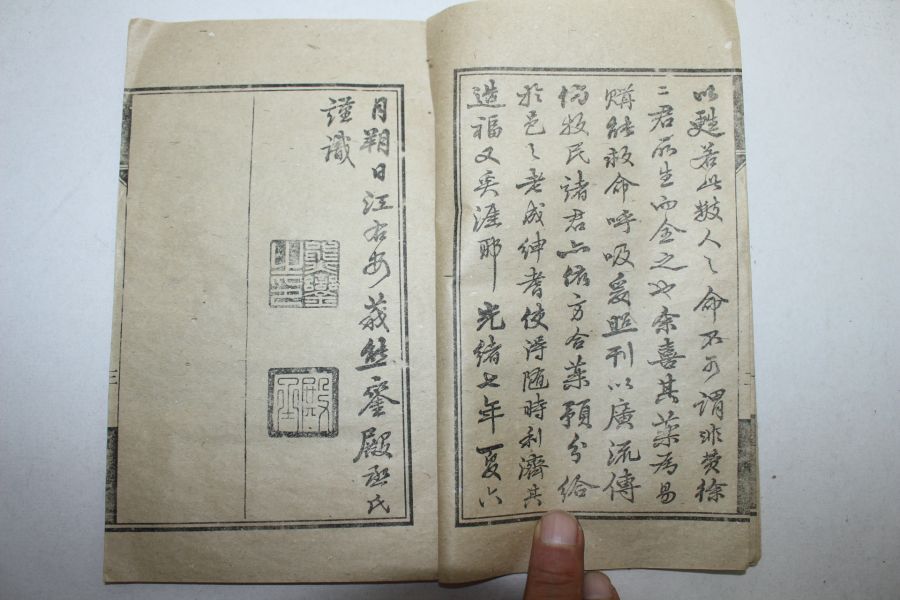 以甦若此數人之命不可謂非黄徐
二君所生而全之也余喜其藥爲易
購能救命呼吸爰照刊以廣流傳
倘牧民諸君亦依方合藥預分給
於邑之老成紳耆使得隨時利濟其
造福又奚涯耶 光緒七年夏六
月朔日江右安義熊鑾殿丞氏
謹識